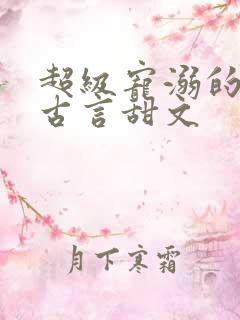 超级宠溺的
古言甜文
月下寒霜